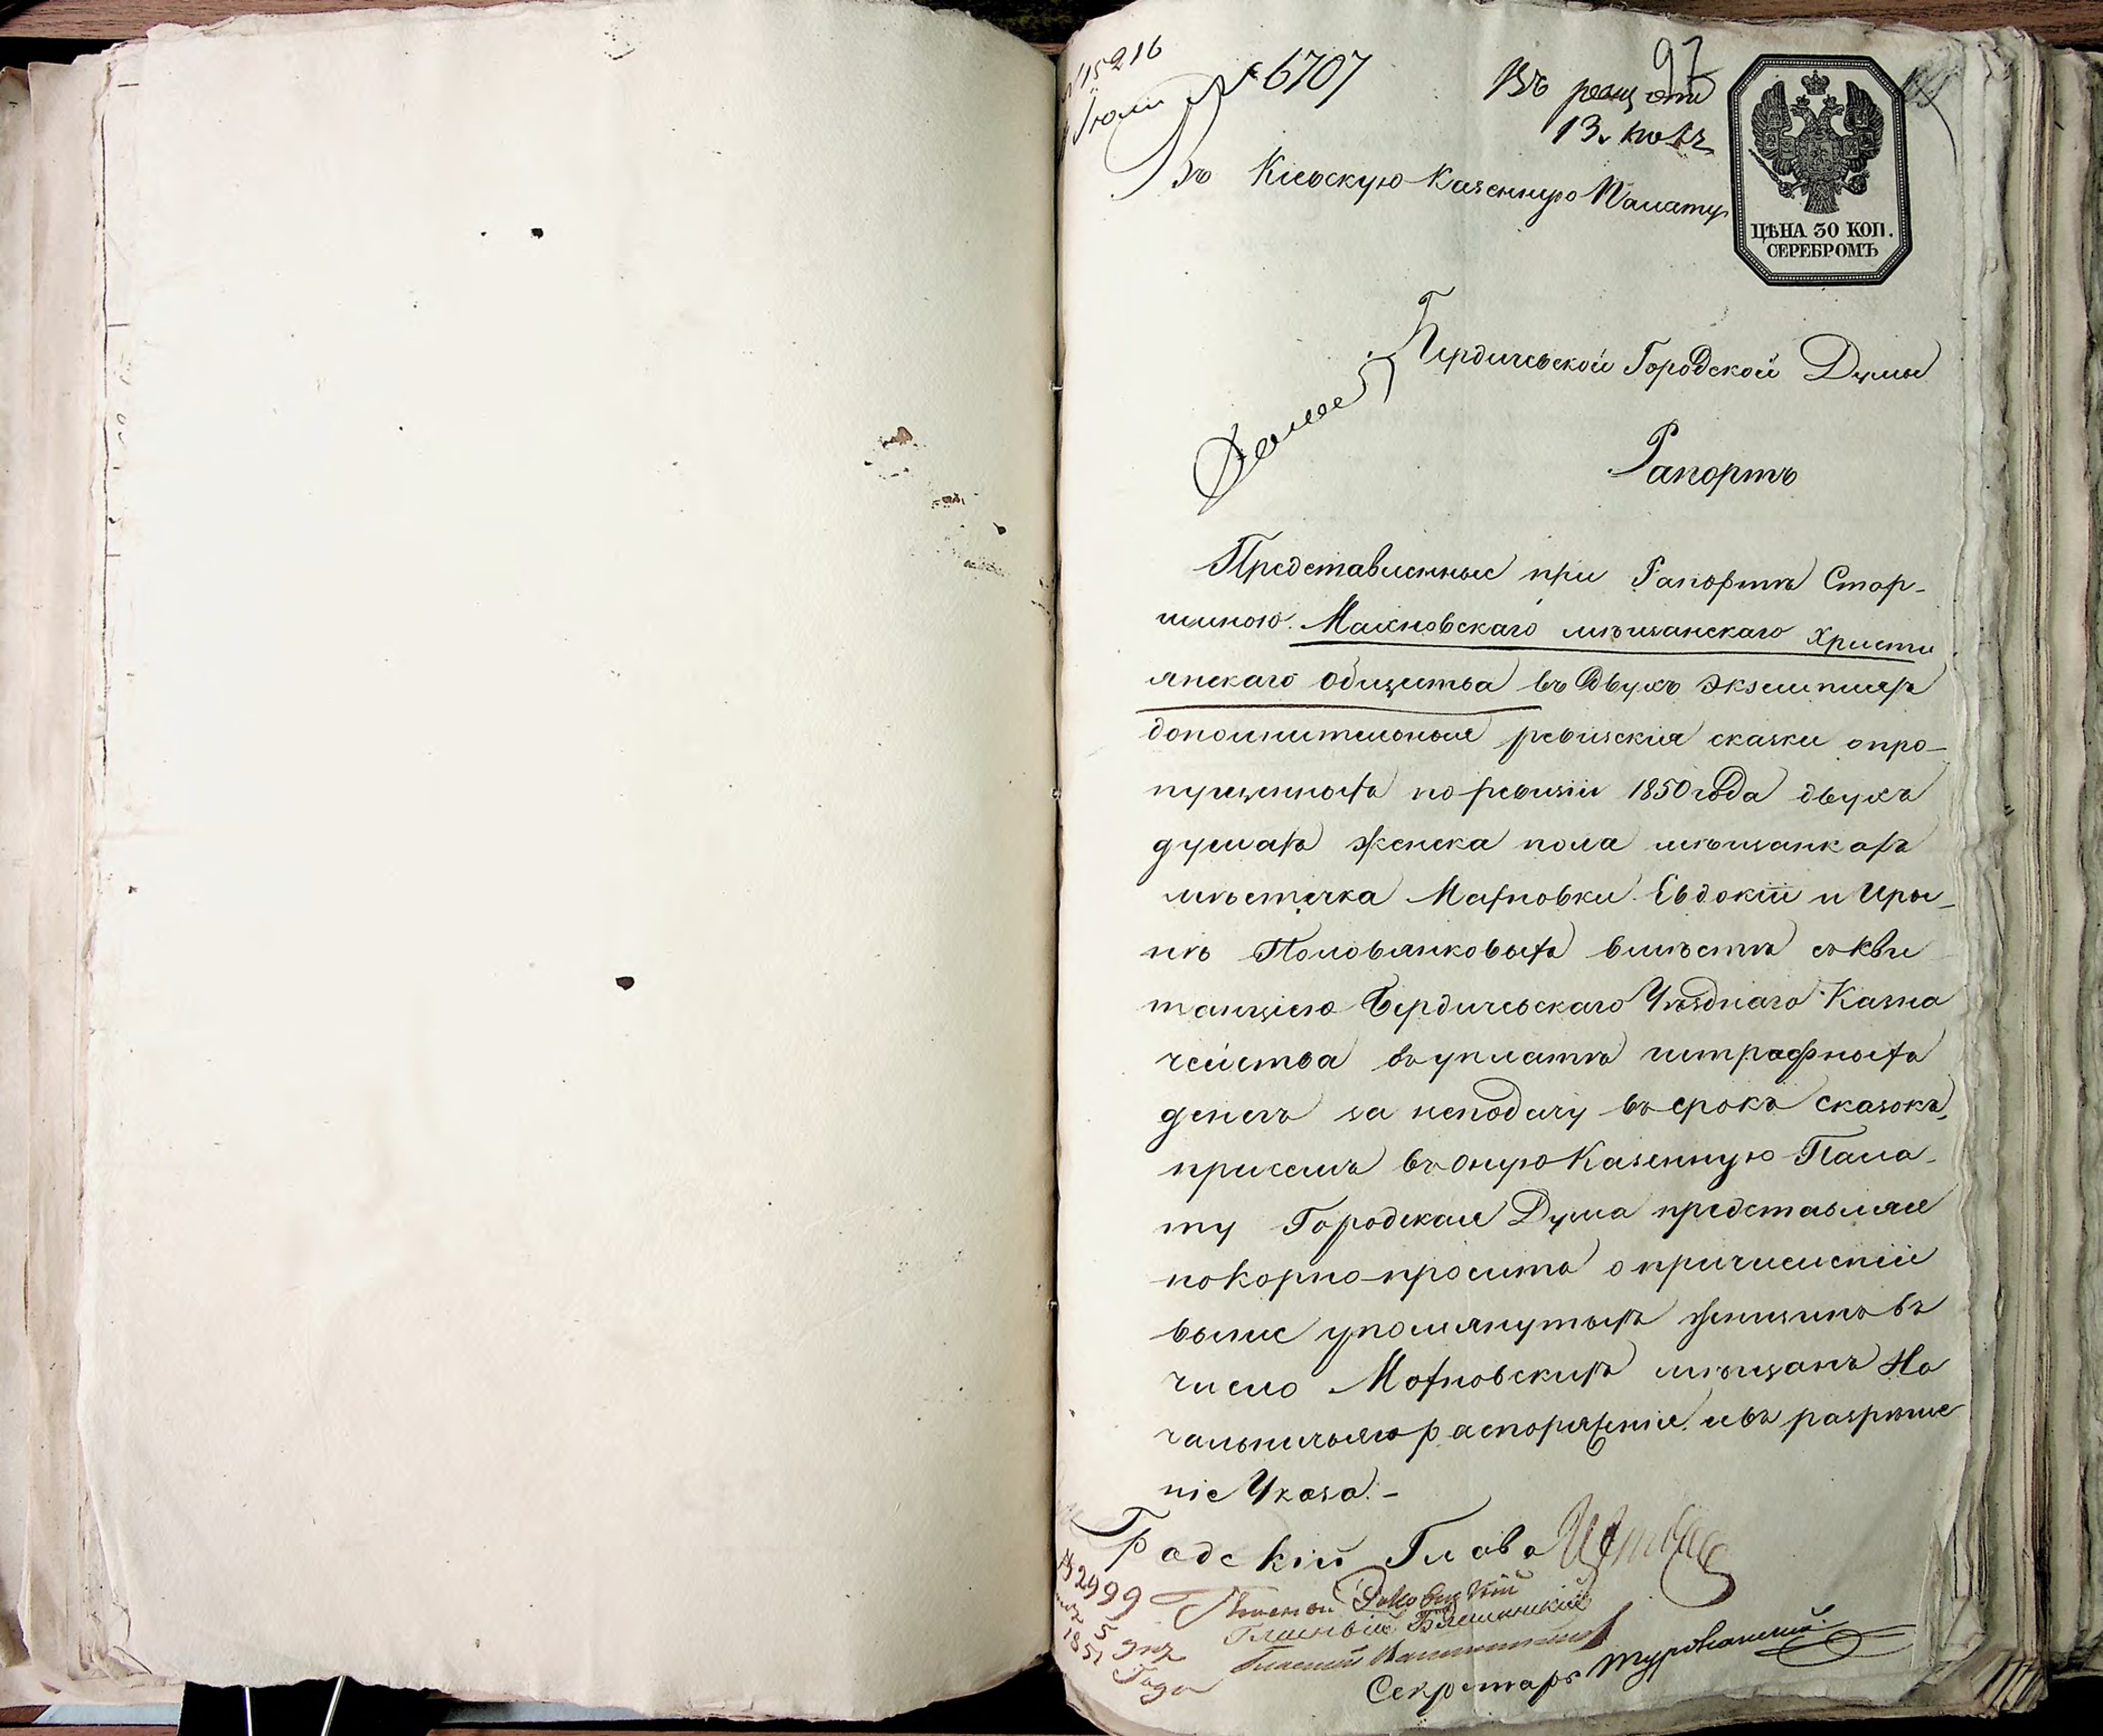 15216
№ 6707
97
13.
Въ Кіевскую Казенную Палату
ЦѢНА 30 КОП.
СЕРЕБРОМЪ
Бердичевской Городской Думы
Рапортъ
Представленные при Рапортѣ Стар-
шиною Махновскаго мѣщанскаго Христи
янскаго Общества въ двухъ экземпляръ
дополнительныя ревизскія сказки опро-
пущенныхъ по ревизіи 1850 года двухъ
душахъ женска пола мѣщанкахъ
мѣстечка Махновки Евдокіи и Иры-
нѣ Половянковыхъ вмѣстѣ съ кви
танціею Бердичевскаго Уѣзднаго Казна
чейства въ уплатѣ штрафныхъ
денегъ за неподачу въ срокъ сказокъ,
присемъ въ оную Казенную Пала-
ту Городская Дума представляя
покорно проситъ о причисленіи
выше упомянутыхъ женщинъ въ
число Махновскихъ мѣщанъ На
чальничьяго распоряженія и въ разрѣше
ніе Указа.-
Градскій Глава
№ 2999
5 дня
1851
Года
Гласный
Гласный
Секретарь Туровский